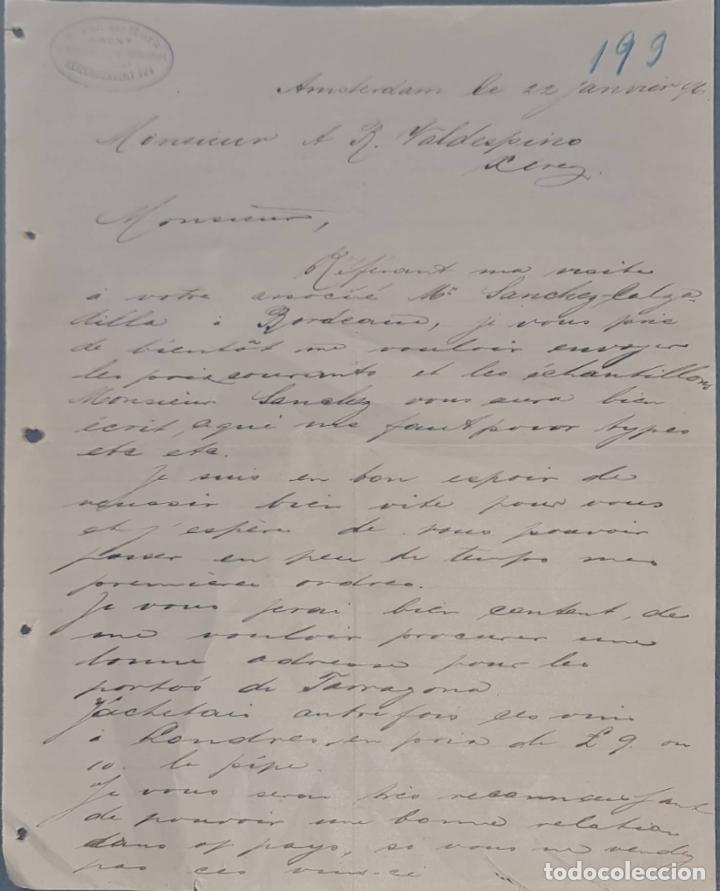 AGENT
KEIZERSGRACHT 224
193
Amsterdam le 22 Janvier 96
Monsieur A R. Valdespino
Xerez.
Monsieur,
Référant ma visite
à votre associé Mr Sanchez-Calza-
dilla à Bordeaux, je vous prie
de bientôt me vouloir envoyer
les prix courants et les échantillons
Monsieur Sanchez vous aura bien
écrit, a qué me faut pour types
etc etc.
Je suis en bon espoir de
reussir bien vite pour vous
et j'espère de vous pouvoir
passer en peu de temps mes
premières ordres.
Je vous serai bien content, de
me vouloir procurer une
bonne adresse pour les
portos de Tarragona
J'achetais autrefois ces vins
à Londres, en prix de £ 9. ou
10. le pipe.
Je vous serai très reconnaissant
de pouvoir une bonne relation
dans ce pays, si vous ne vendez
pas ces vins-ci
todocoleccion
todocoleccion.net